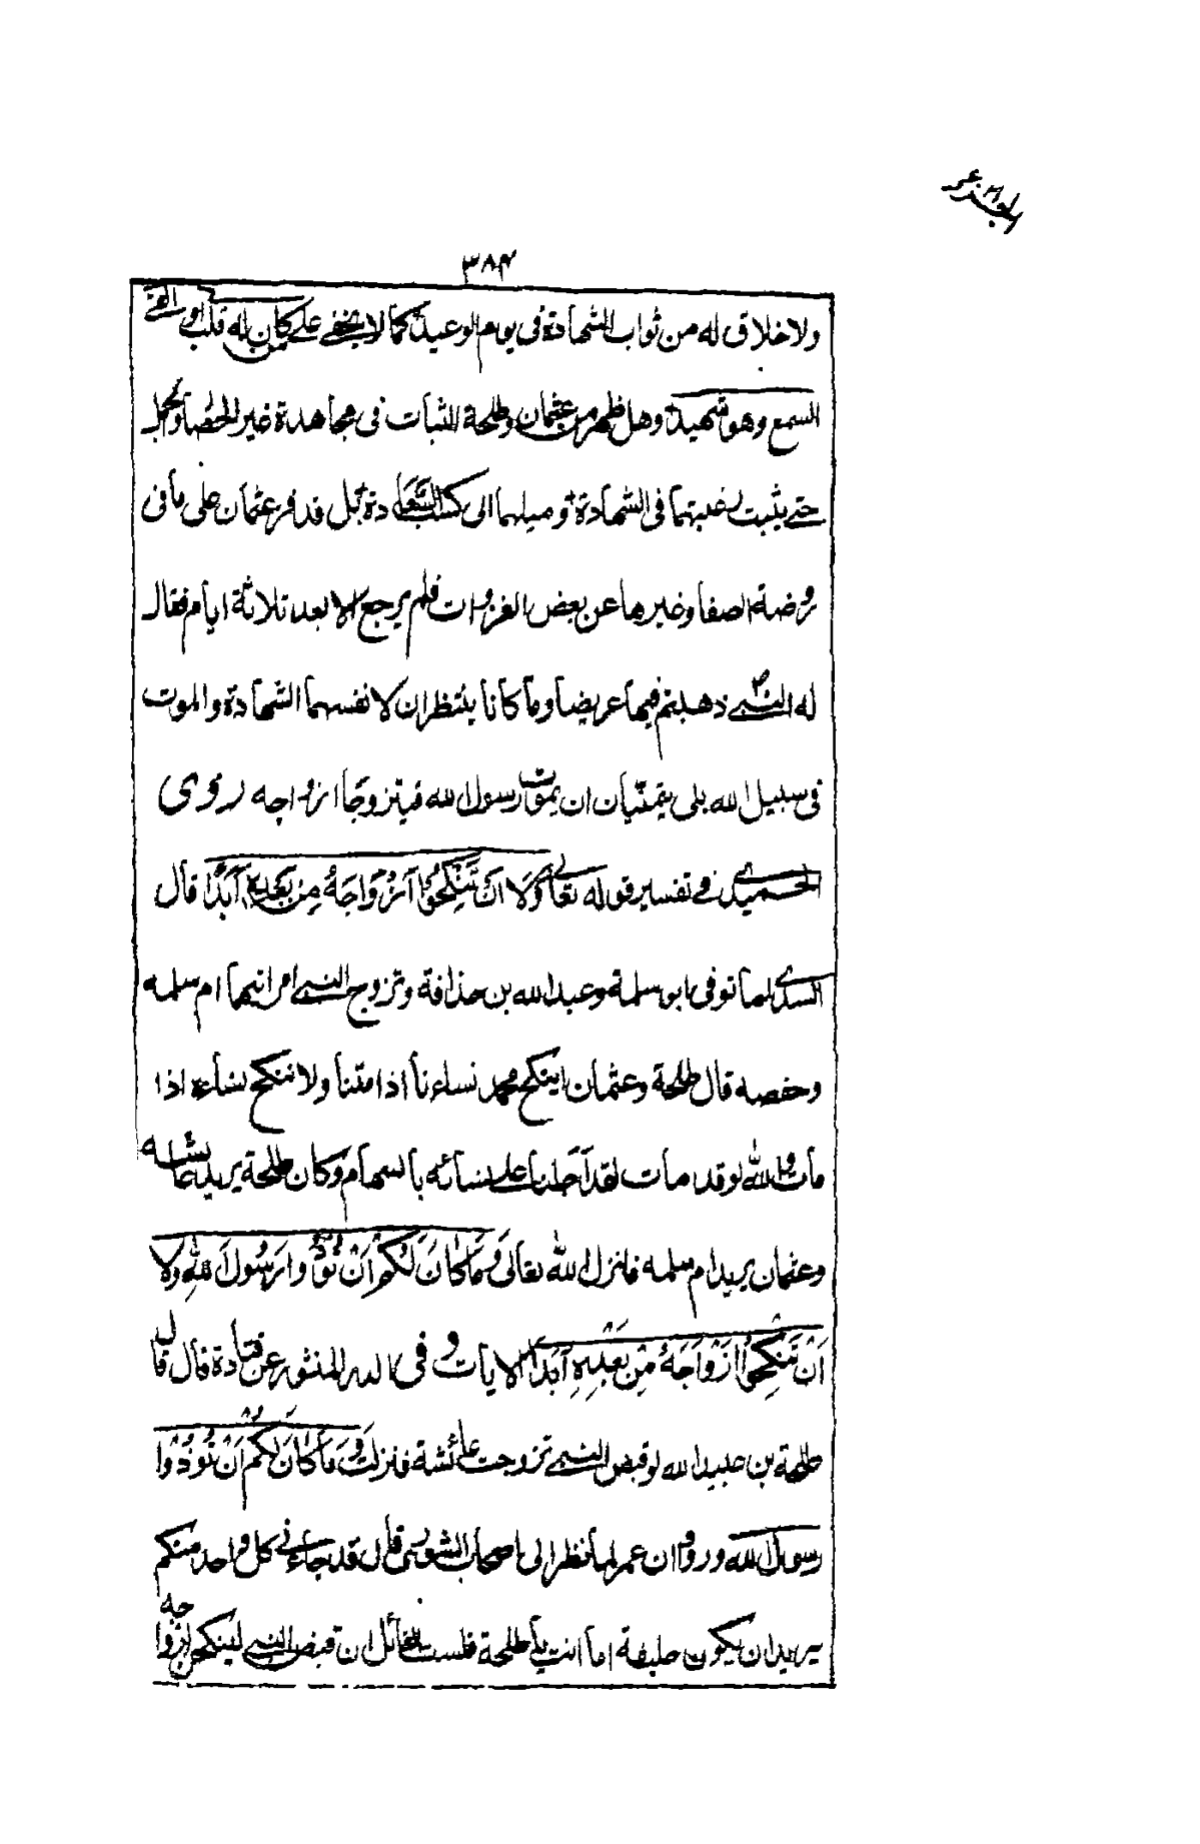 الجزء
٣٨٤
ولا خلاق له من ثواب الشهادة فى يوم الوعيد كما لا يخفى على من كان له قلب او القى
السمع وهو شهيد وهل ظهر من عثمان وطلحة الثبات فى مجاهدة غير
حتى يثبت رغبتهما فى الشهادة وميلهما الى كسب السعادة بل قد فر عثمان على ما فى
روضة الصفا وغيرها عن بعض الغزوات فلم يرجع الا بعد ثلاثة ايام فقال
له النبى ص ذهبتم فيها عريضا وما كانا ينتظران لانفسهما الشهادة والموت
فى سبيل الله بلى يتمنيان ان يموت رسول الله فيتزوجا ازواجه روى
الحميدى فى تفسير قوله تعالى وَلَا اَنْ تَنْكِحُوْا اَزْوَاجَهُ مِنْ بَعْدِهِ اَبَدًا قال
السدى لما توفى ابو سلمة وعبد الله بن حذافة وتزوج النبى امراتيهما ام سلمه
وحفصه قال طلحة وعثمان اينكح محمد نساءنا اذا متنا ولا ننكح نساءه اذا
مات والله لو قد مات لقد اجلنا على نسائه بالسهام وكان طلحة يريد عائشه
وعثمان يريد ام سلمه فانزل الله تعالى وَمَا كَانَ لَكُمْ اَنْ تُؤْذُوا رَسُوْلَ اللهِ وَلَا
اَنْ تَنْكِحُوْا اَزْوَاجَهُ مِنْ بَعْدِهِ اَبَدًا الايات و فى الدر المنثور عن قتادة قال قال
طلحة بن عبيد الله لو قبض النبى تزوجت عائشة فنزلت وَمَا كَانَ لَكُمْ اَنْ تُؤْذُوْا
رسول الله ورووا ان عمر لما نظر الى اصحاب الشورى قال قد جاءنى كل واحد منكم
يريد ان يكون خليفة اما انت يا طلحة فلست القائل ان قبض النبى لينكحن ازواجه